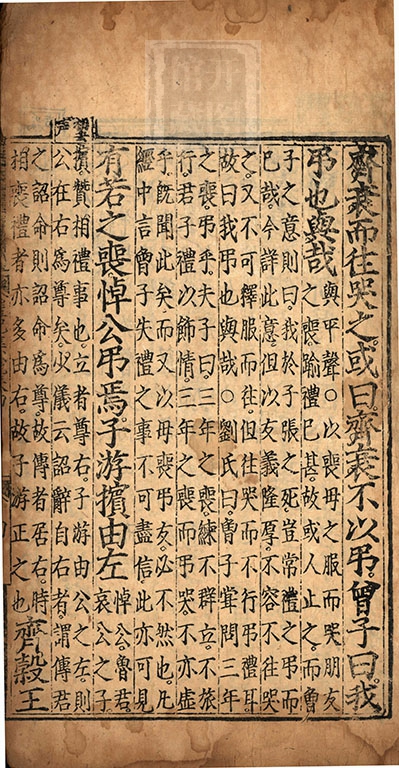 齊衰而往哭之。或曰。齊衰不以弔曾子曰。我
弔也與哉
與平聲○以喪母之服而哭朋友
之喪踰禮已甚。故或人止之。而曾
子之意則曰。我於子張之死。豈常禮之弔而
已哉。今詳此意。但以友義隆厚。不容不往哭
之。又不可釋服而往。但往哭而不行弔禮耳
故曰我弔也與哉○劉氏曰。曾子嘗問三年
之喪弔乎。夫子曰。三年之喪。練不群立。不旅
行。君子禮以飾情。三年之喪而弔哭。不亦虛
乎。旣聞此矣。而又以母喪弔友。必不然也。凡
經中言曾子失禮之事不可盡信此亦可見
有若之喪悼公弔焉。子游擯由左
悼公。魯君。
哀公之子
擯。贊相禮事也。立者尊右。子游由公之左。則
公在右爲尊矣。少儀云詔辭自右者。謂傳君
之詔命則詔命爲尊。故傳者居右。時
相喪禮者亦多由右。故子游正之也
齊穀王